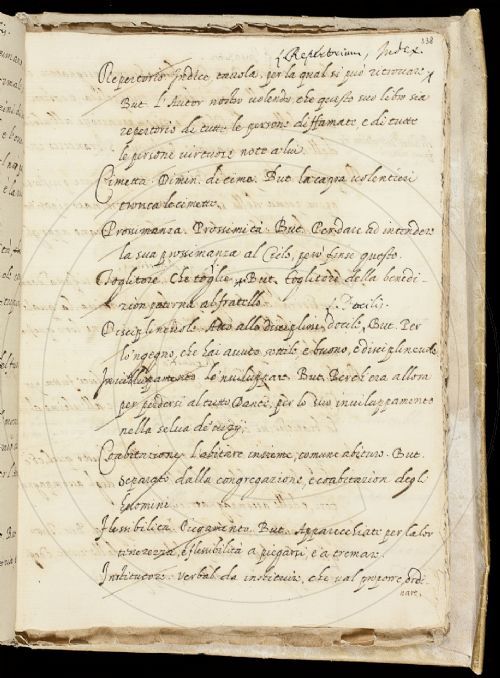 338
Repertorium, Index.
Repertorio. Indice, tavola, per la qual si può ritrovare
But. L'Autor nostro volendo, che questo suo libro sia
repertorio di tutte le persone diffamate, e di tutte
le persone virtuose note a lui.
Cimetta. Dimin. di cima. But. la capra volentieri
tronca le cimette.
Prossimanza. Prossimità. But. Per dare ad intendere
la sua prossimanza al Cielo, però finse questo.
Toglitore. Che toglie. But. toglitore della benedi-
zion paterna al fratello.
Docilis.
Disciplinevole. Atto alle discipline, docile, But. Per
lo'ngegno, che hai avuto sottile e buono, e disciplinevole
Inviluppamento. Lo 'nviluppare. But. Perch'era allora
per perdersi al tutto Dante, per lo suo inviluppamento
nella selva de' vizj.
Coabitazione. L'abitare insieme, comune abituro. But.
Separato dalla congregazione, e coabitazion degl'
huomini
Flessibilità. Piegamento. But. Apparecchiati per la lor
tenerezza, e flessibilità a piegarsi e a tremare.
Institutore. Verbal. da instituire, che val proporre, ordi
nare.